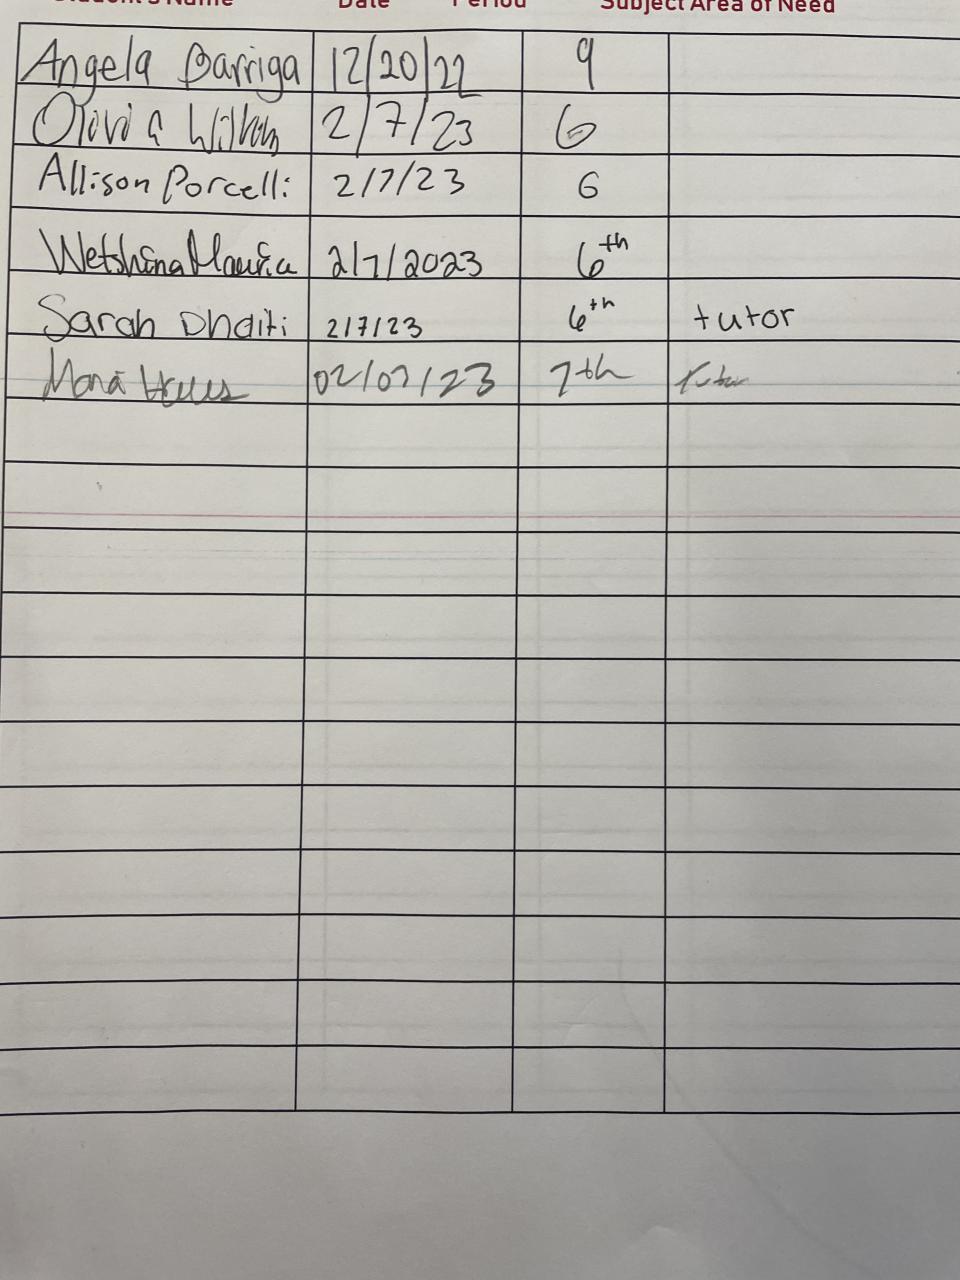 Student's Name Date Period Subject Area of Need
Angela Barriga 12/20/22 9
Olivia 2/7/23 6
Allison Porcelli 2/7/23 6
2/7/2023 6th
Sarah Dhaiti 2/7/23 6th tutor
02/07/23 7th tutor